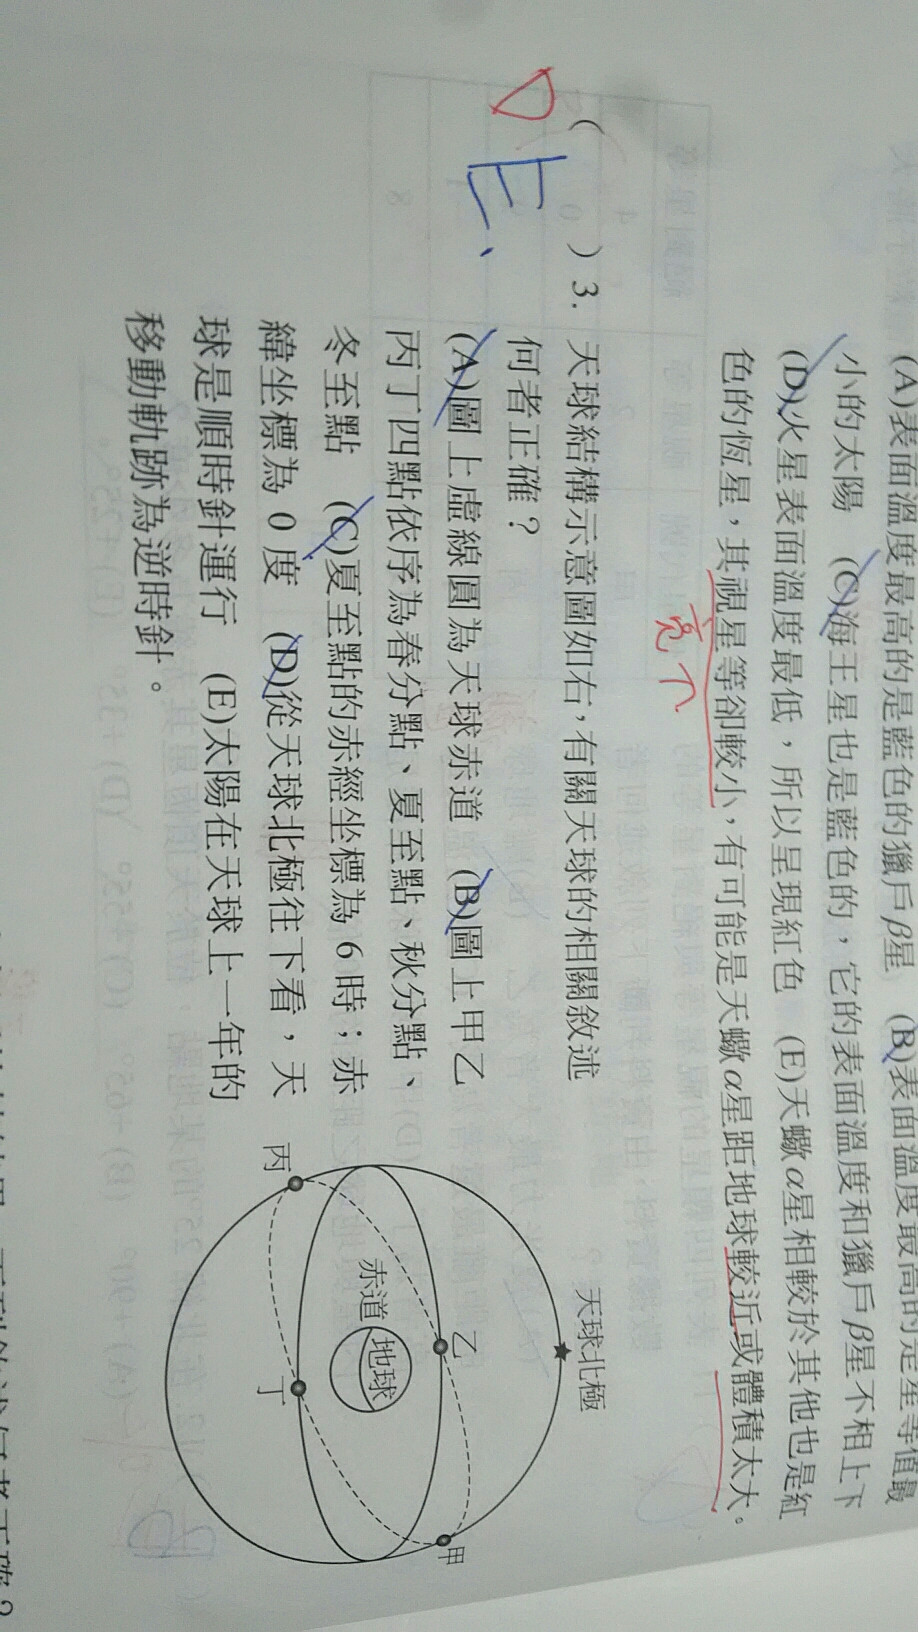 (A)表面溫度最高的是藍色的獵戶β星 (B)表面溫度最高的是星等值最
小的太陽 (C)海王星也是藍色的，它的表面溫度和獵戶β星不相上下
(D)火星表面溫度最低，所以呈現紅色 (E)天蠍α星相較於其他也是紅
色的恆星，其視星等卻較小，有可能是天蠍α星距地球較近或體積太大。
亮
( D E、 ) 3. 天球結構示意圖如右，有關天球的相關敘述
何者正確？
(A)圖上虛線圓為天球赤道 (B)圖上甲乙
丙丁四點依序為春分點、夏至點、秋分點、
冬至點 (C)夏至點的赤經坐標為 6 時；赤
緯坐標為 0 度 (D)從天球北極往下看，天
球是順時針運行 (E)太陽在天球上一年的
移動軌跡為逆時針。
天球北極
乙
甲
赤道
地球
丙
丁